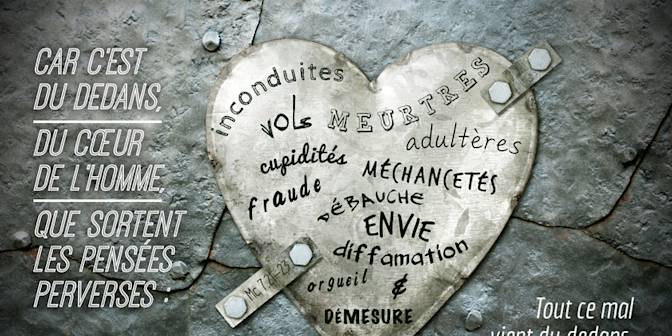 CAR C'EST
DU DEDANS,
DU CŒUR
DE L'HOMME,
QUE SORTENT
LES PENSÉES
PERVERSES :
inconduites
vols
MEURTRES
adultères
cupidités
MÉCHANCETÉS
fraude
DÉBAUCHE
ENVIE
diffamation
orgueil
&
DÉMESURE
Mc 7.21-23
Tout ce mal
vient du dedans